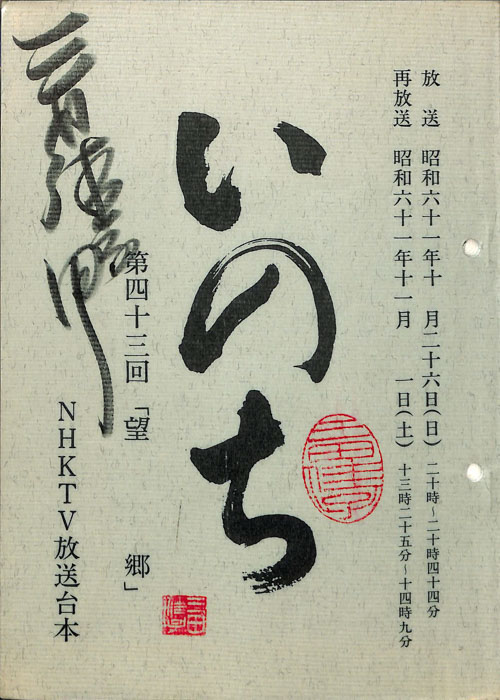 放　送　昭和六十一年十　月二十六日(日)　二十時～二十時四十四分
再放送　昭和六十一年十一月　　一日(土)　十三時二十五分～十四時九分
いのち
第四十三回「望　　郷」
NHKTV放送台本